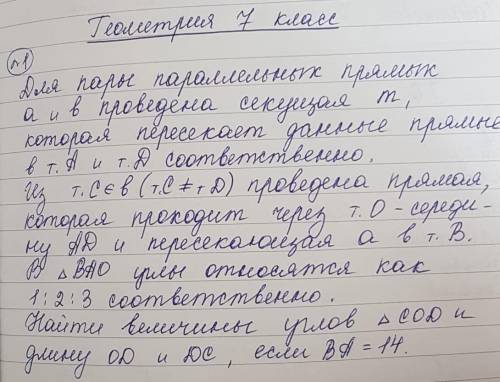 Геометрия 7 класс
№1
Для пары параллельных прямых
а и в проведена секущая m,
которая пересекает данные прямые
в т. А и т. Д соответственно.
Из т. С ∈ в (т. С ≠ т. D) проведена прямая,
которая проходит через т. О - середи-
ну АD и пересекающая а в т. В.
В △ВАО углы относятся как
1:2:3 соответственно.
Найти величины углов △СОD и
длину ОD и DС, если ВА = 14.